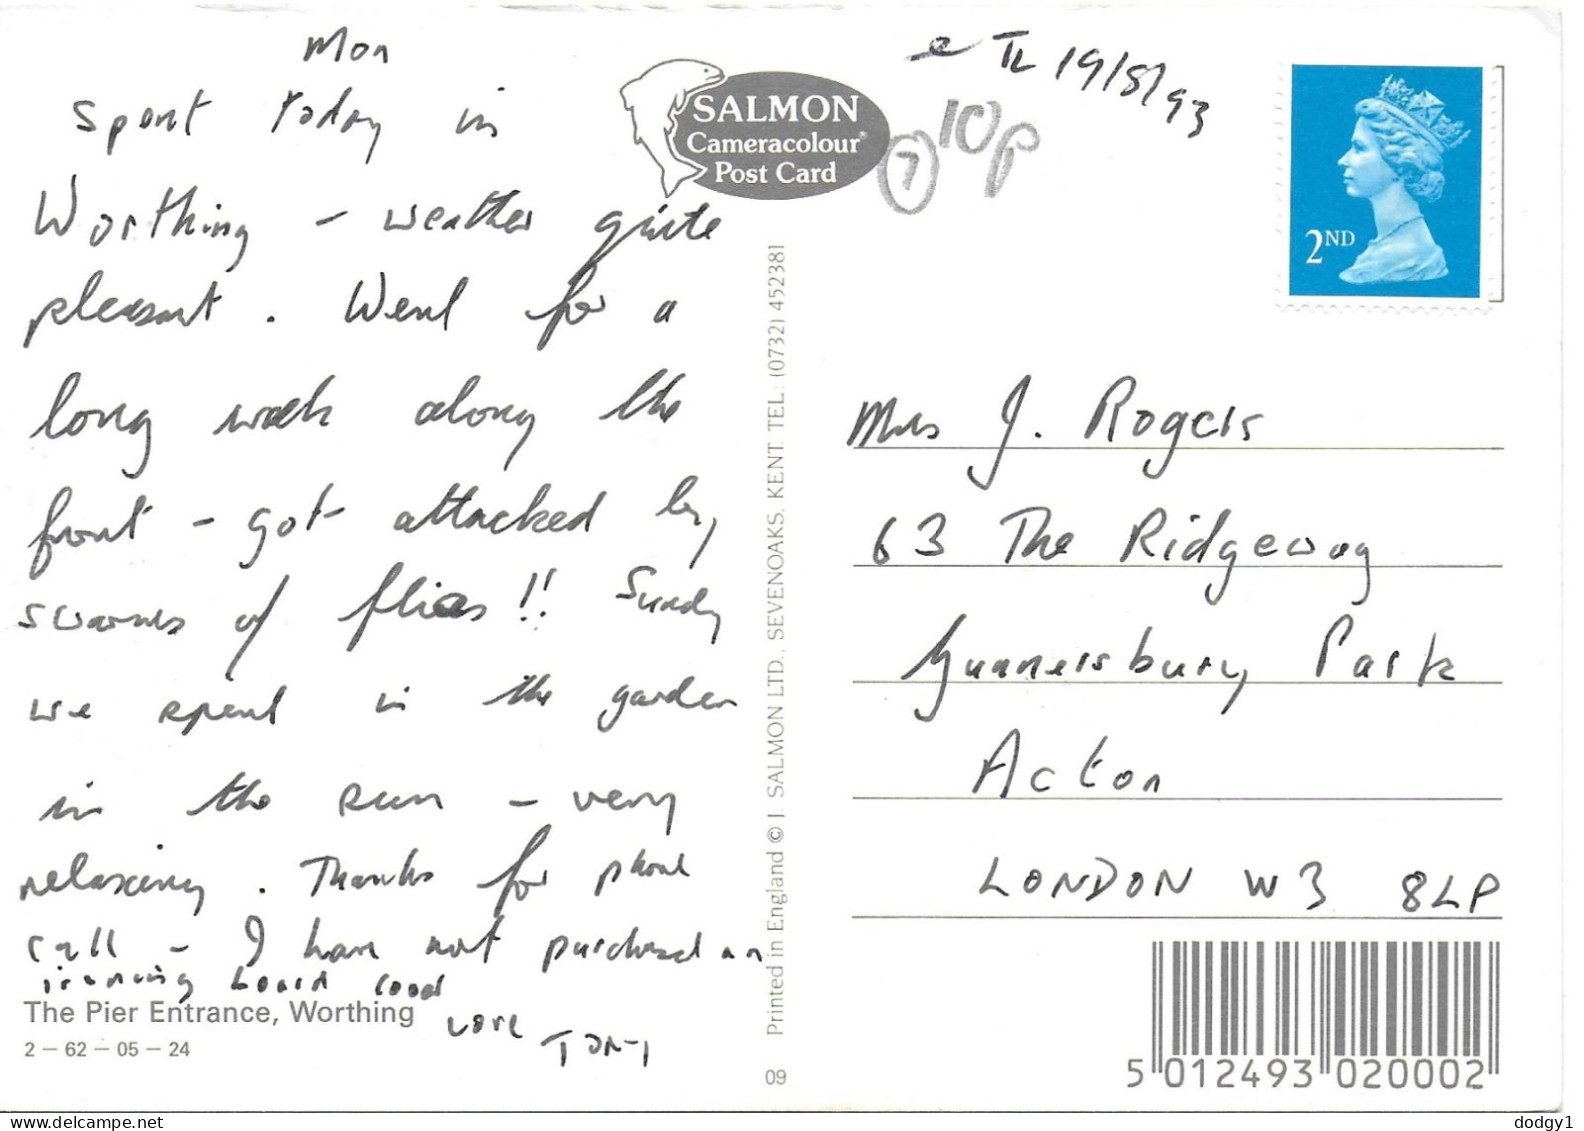 Mon
Spent today in
Worthing - weather quite
pleasant. Went for a
long walk along the
front - got attacked by
swarms of flies!! Sunday
we spent in the garden
in the sun - very
relaxing. Thanks for phone
call - I have not purchased an
ironing board
love Tony
The Pier Entrance, Worthing
2 – 62 – 05 – 24
SALMON
Cameracolour
Post Card
Printed in England © J. SALMON LTD., SEVENOAKS, KENT. TEL: (0732) 452381
09
TL 19/8/93
7 10p
2ND
Mrs J. Rogers
63 The Ridgeway
Gunnersbury Park
Acton
LONDON W3 8LP
5 012493 020002
dodgy1